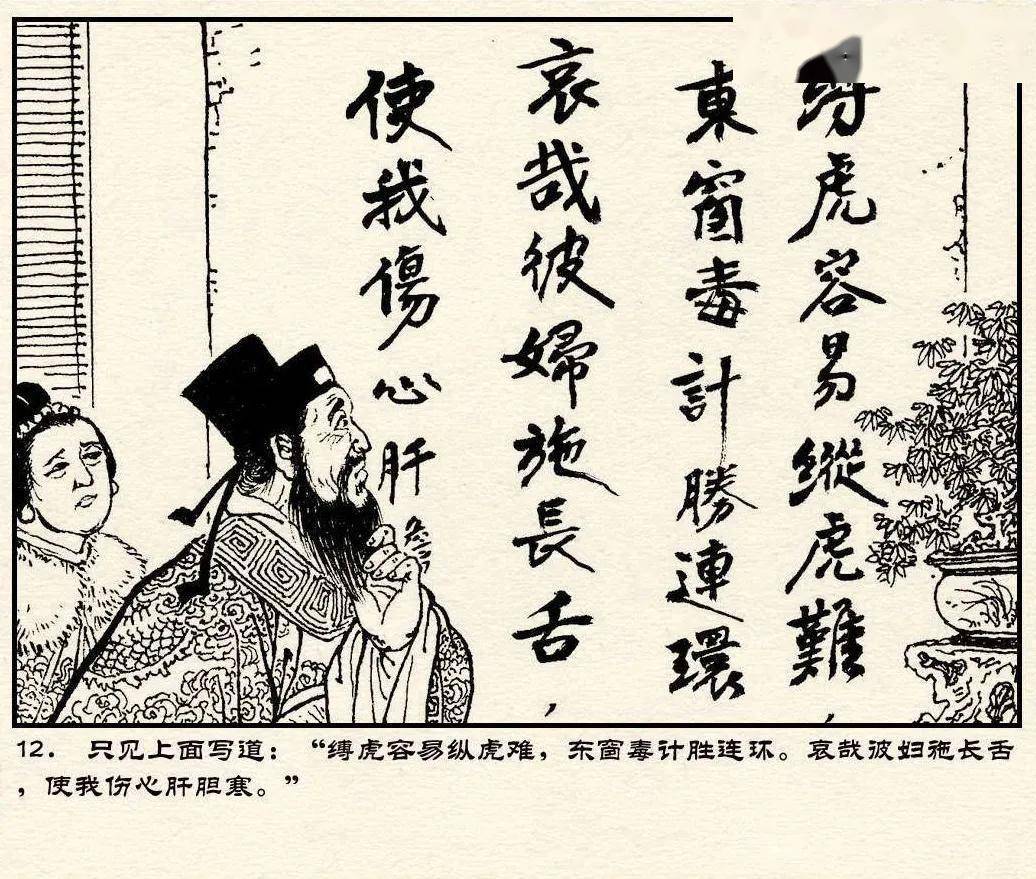 虎容易縱虎難，
東窗毒計勝連環
哀哉彼婦施長舌，
使我傷心肝
12． 只见上面写道：“缚虎容易纵虎难，东窗毒计胜连环。哀哉彼妇施长舌
，使我伤心肝胆寒。”